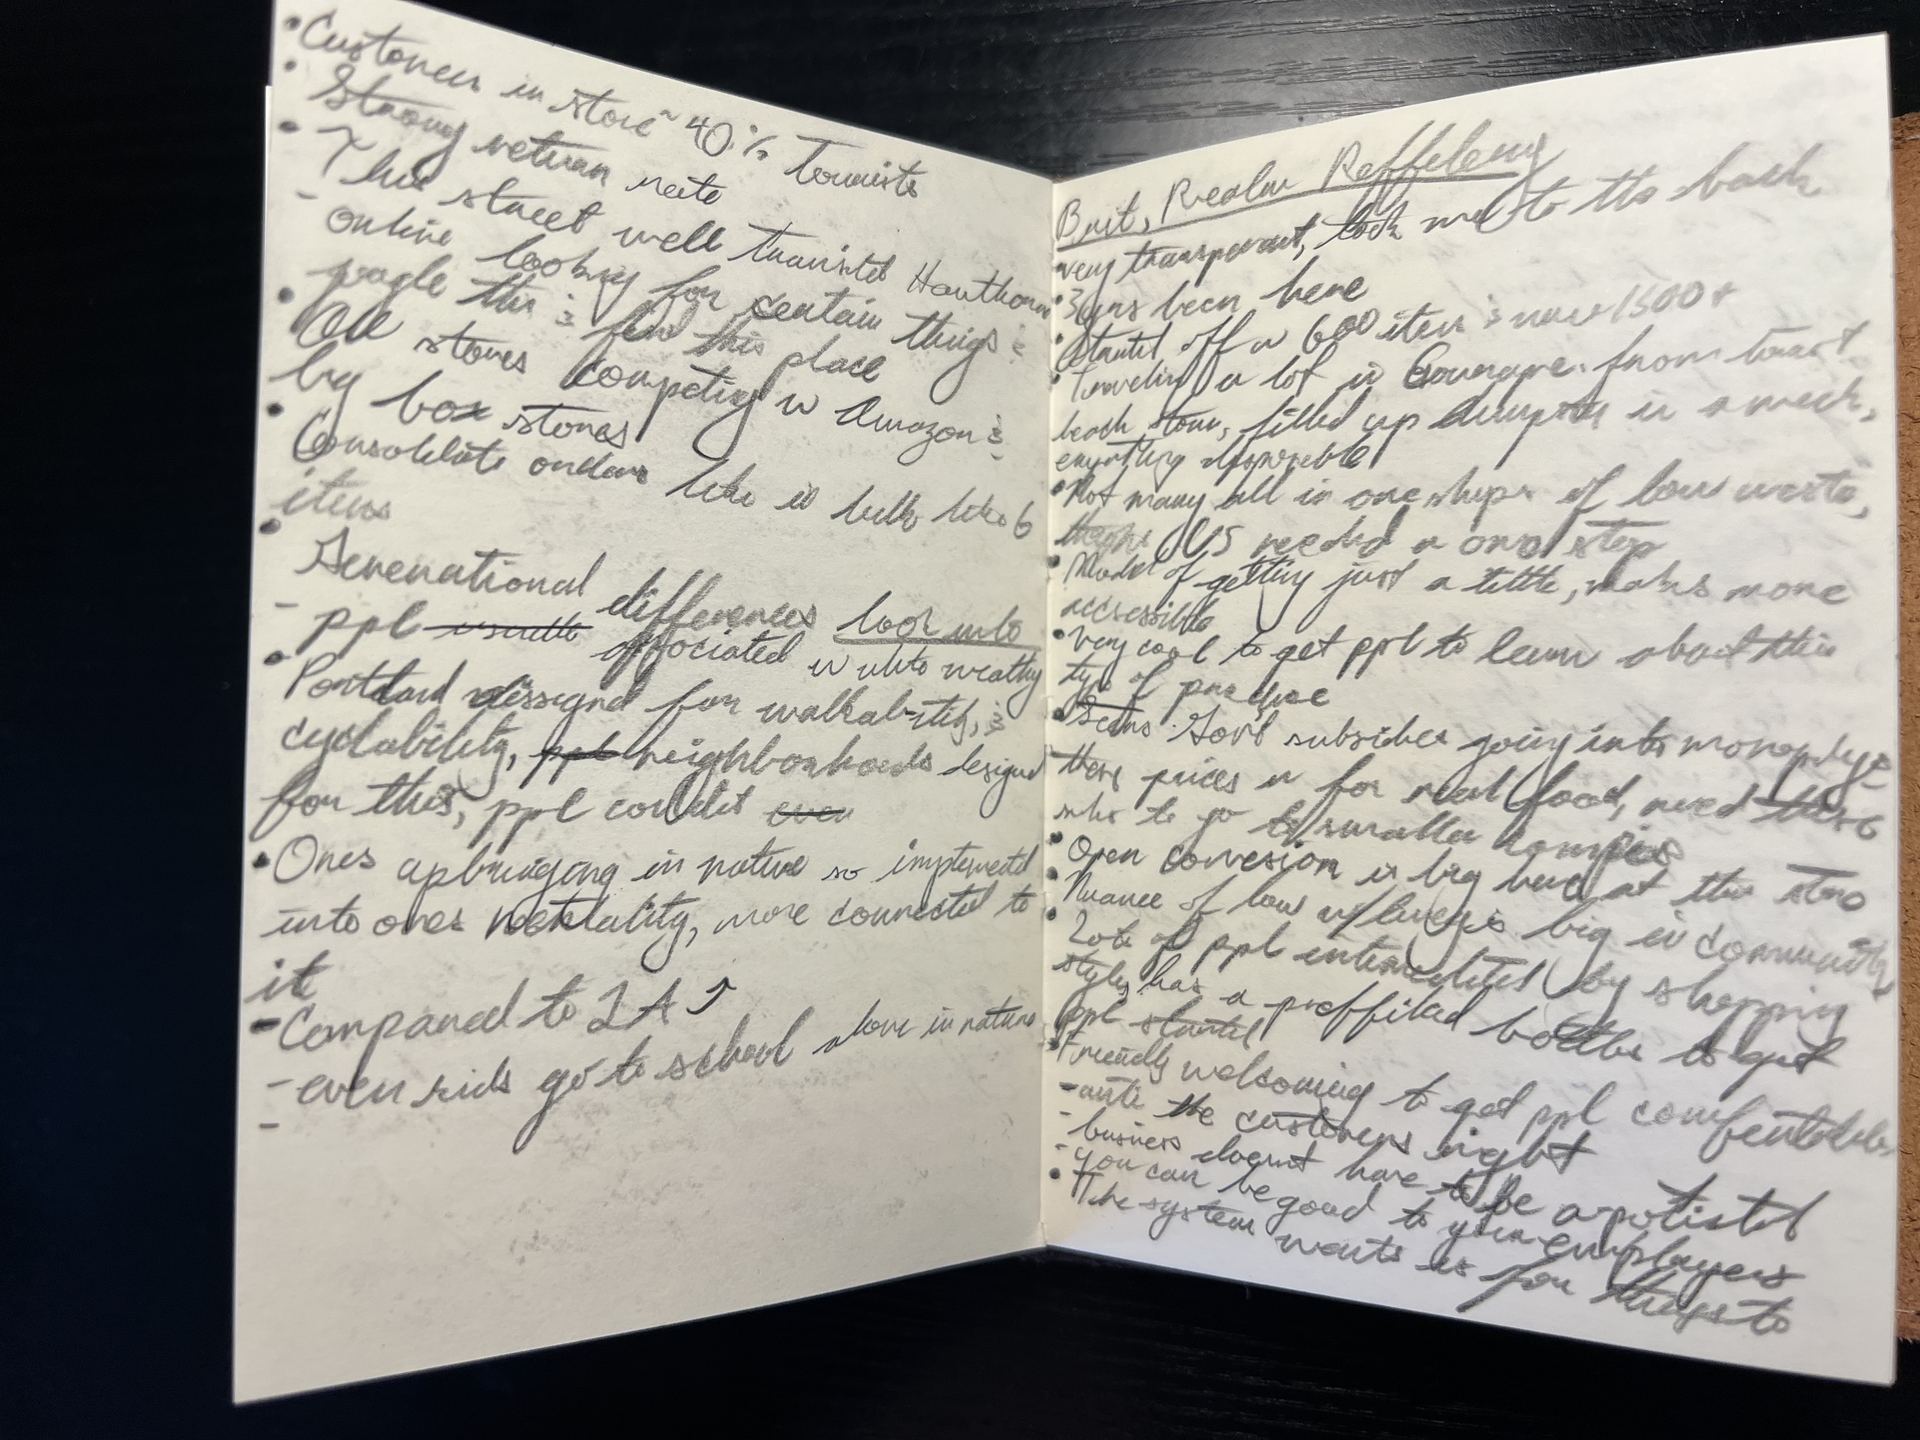 • Customers in store ~ 40% Tourists
• Strong return rate
• This street well transited Hawthorn
- online looking for certain things &
google this & find this place
• All stores competing w Amazon &
big box stores
• Consolidate orders like in bulk like 6
items
• Generational differences look into
- ppl usually associated w white wealthy
• Portland designd for walkability, &
cyclability, ppl neighborhoods designd
for this, ppl couldit even
• Ones upbringing in nature so implemented
into ones mentality, more connected to
it
- Compared to LA
- even kids go to school alone in nature
-
Brit, Realm Reffilery
• very transparent, took me to the back
• 3 yrs been here
• Started off w 600 items & now 1500+
• Traveling a lot in from
beach town, filled up dumpster in a week,
everything disposable
• Not many all in one shops of low waste,
needed a one stop
• Model of getting just a little, makes more
accessible
• very cool to get ppl to learn about this
type of practice
• Seems Gov't subsides going into
these prices for real food, need these
to go to smaller
• Open convesion is big here at the store
• Nuance of low is big in community
• Lots of ppl intimidated by shopping
style, has a preffilled bottles to get
ppl started
• Friendly welcoming to get ppl comfentable
- anti the customers right
- business doesnt have to be
- you can be good to your employers
• The system wants us for things to